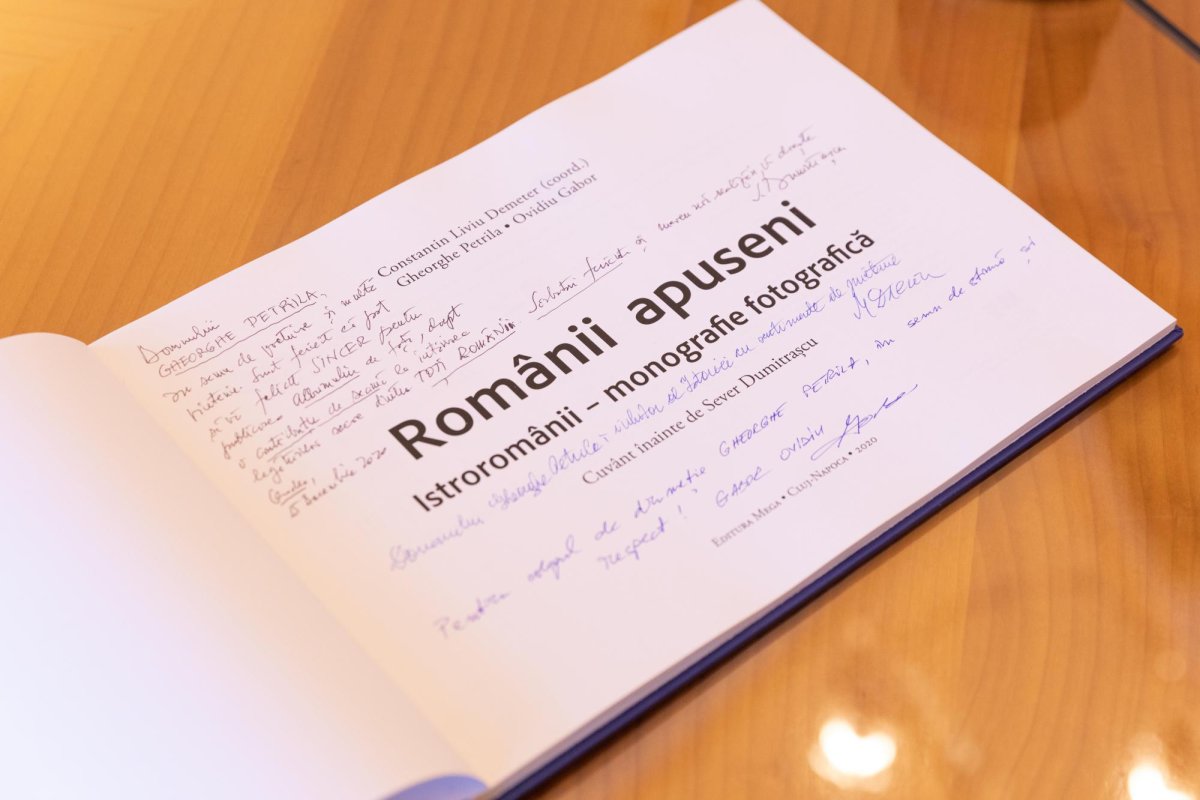 Constantin Liviu Demeter (coord.)
Gheorghe Petrila • Ovidiu Gabor
Domnului
GHEORGHE PETRILA,
cu semn de prețuire și multă
prietenie. Sunt fericit că pot
să vă felicit SINCER pentru
publicarea Albumului de față, drept
o contribuție de seamă la
legăturilor dintre TOȚI ROMÂNII
5 Decembrie 2020
Sărbători fericite și
Românii apuseni
Istroromânii – monografie fotografică
Cuvânt înainte de Sever Dumitrașcu
Domnului Gheorghe Petrilă iubitor al Istoriei cu sentimente de prietenie
Pentru colegul de drumeție GHEORGHE PETRILA, în semn de stimă și
respect! GABOR OVIDIU
Editura Mega • Cluj-Napoca • 2020